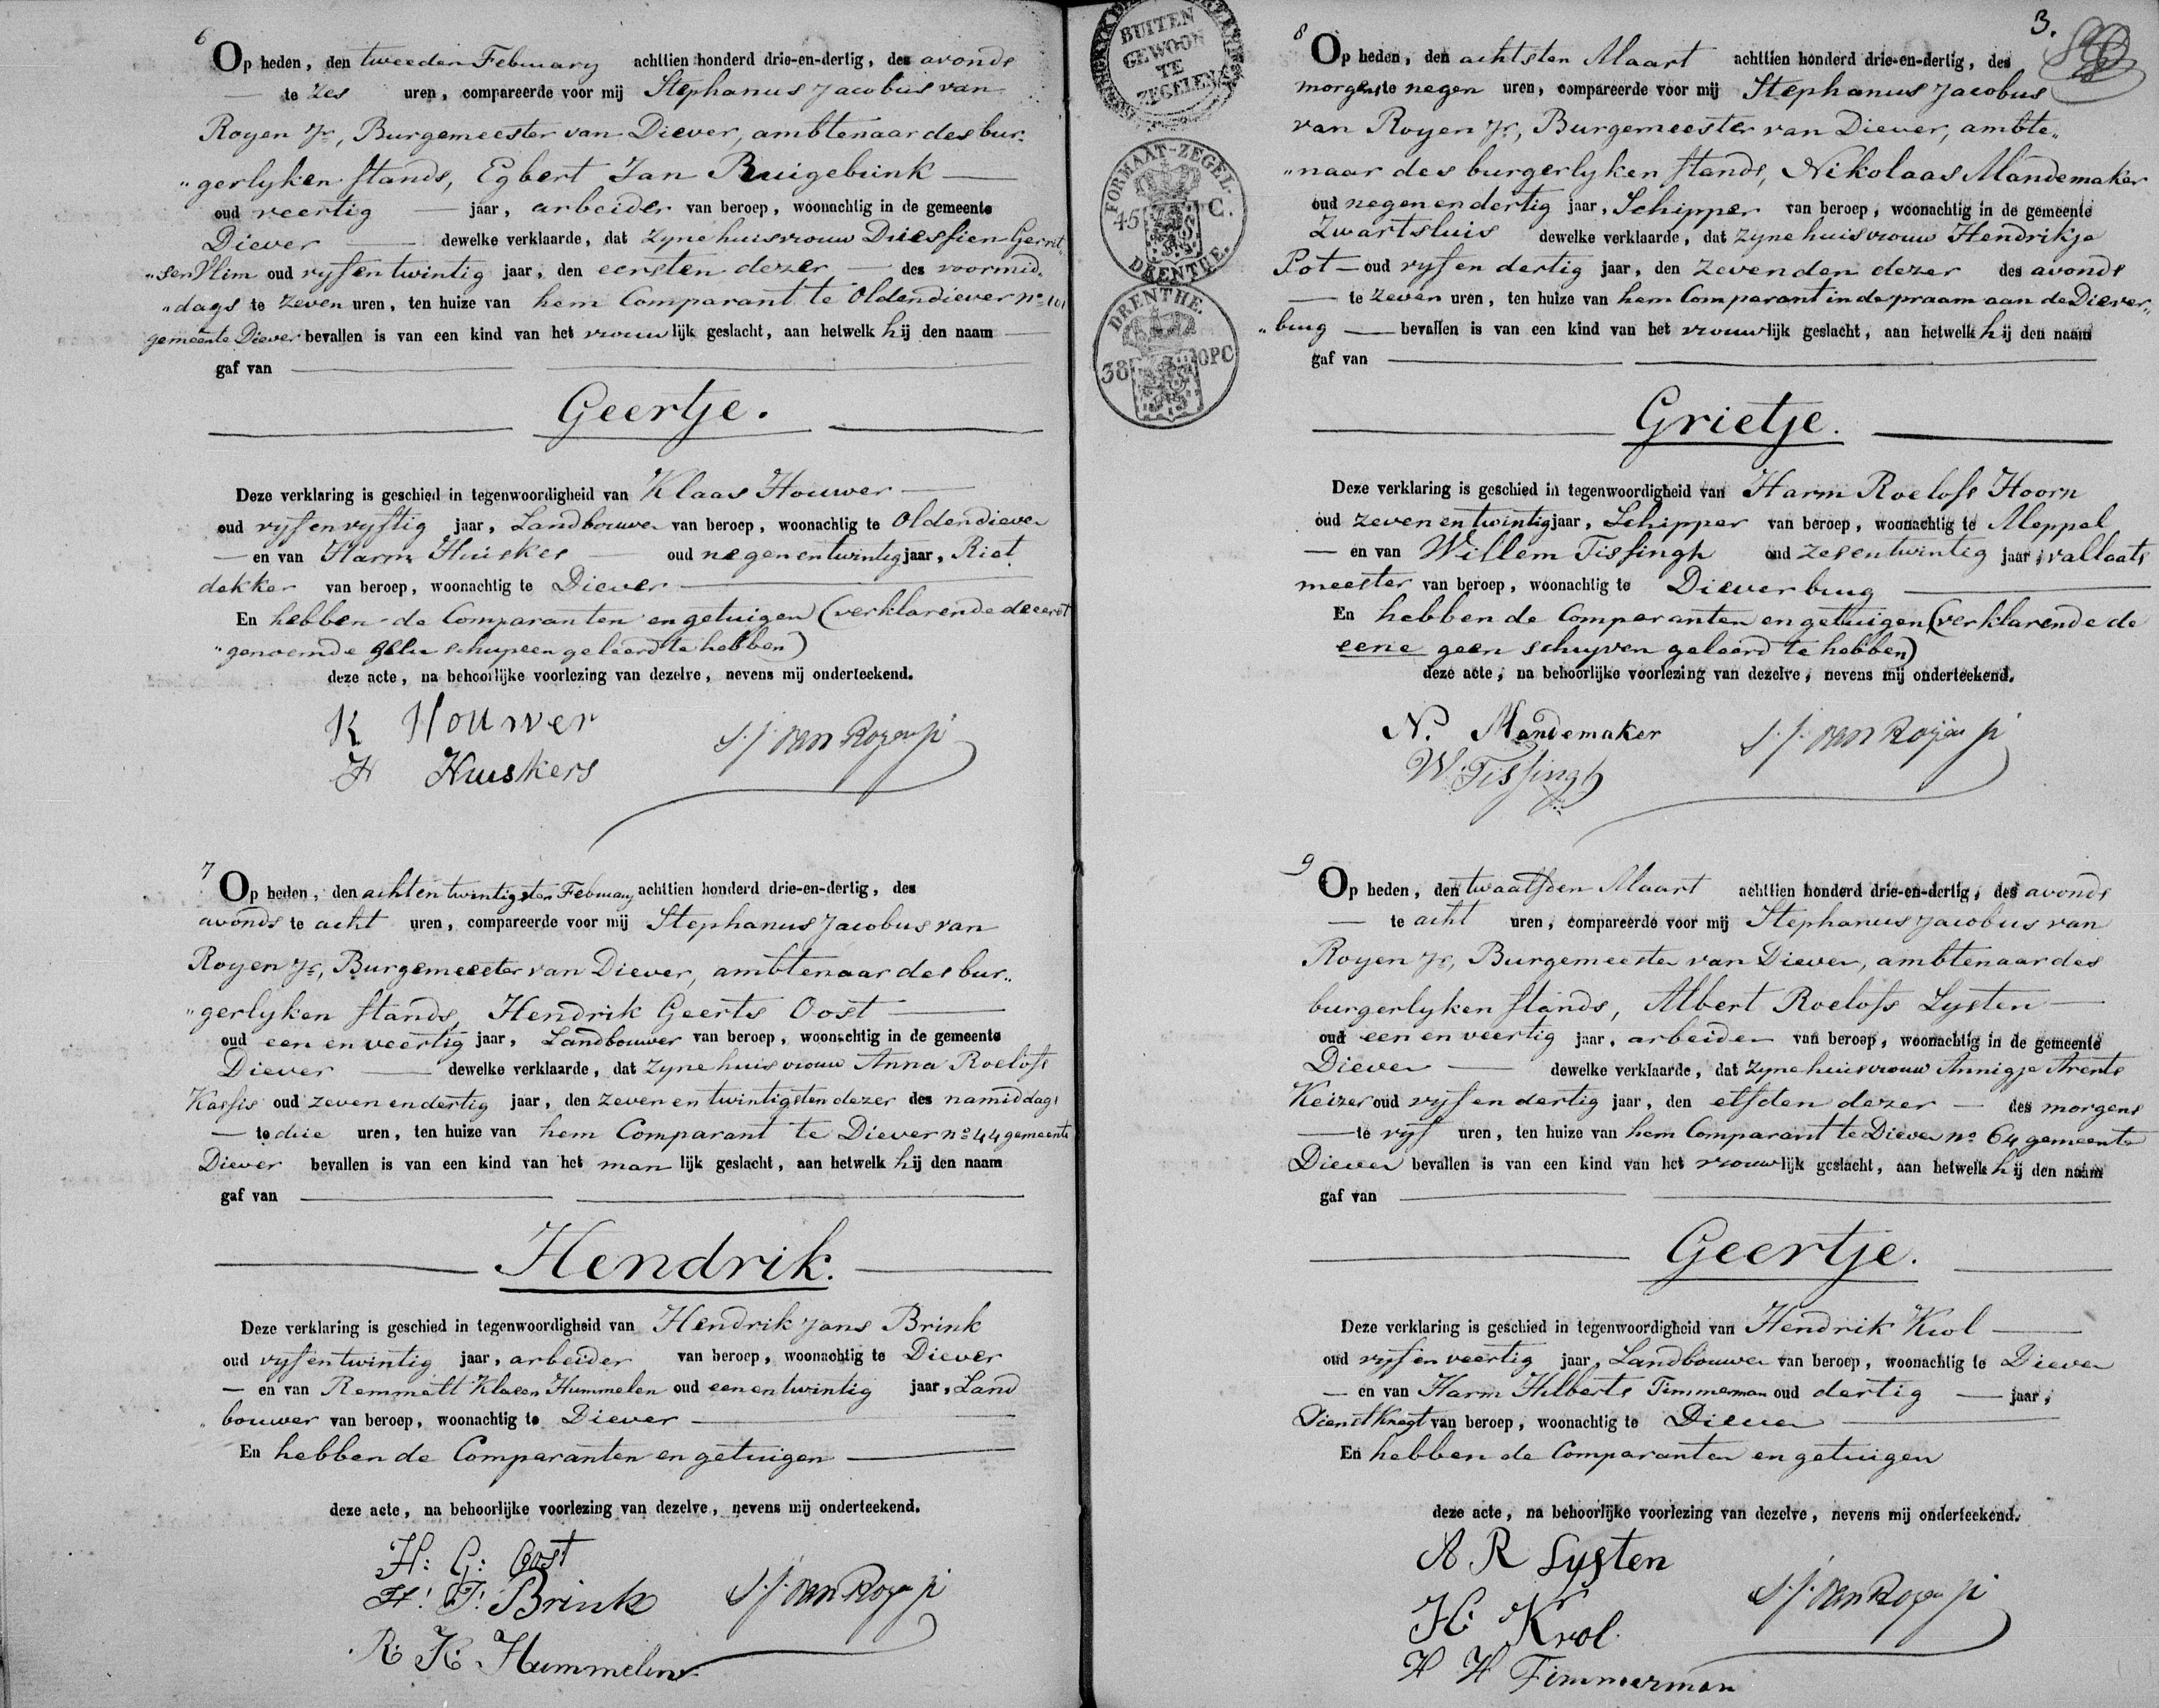 6
Op heden, den tweeden February achttien honderd drie-en-dertig, des avonds
te zes uren, compareerde voor mij Stephanus Jacobus van
Royen Jr, Burgemeester van Diever, ambtenaar des bur-
"gerlyken stands, Egbert Jan Ruigebrink
oud veertig jaar, arbeider van beroep, woonachtig in de gemeente
Diever dewelke verklaarde, dat zyne huisvrouw Driessien Gerrit
"sen Vlim oud vyf en twintig jaar, den eersten dezer des voormid.
"dags te zeven uren, ten huize van hem Comparant te Oldendiever no 101
gemeente Diever bevallen is van een kind van het vrouwlijk geslacht, aan hetwelk hij den naam
gaf van
Geertje.
Deze verklaring is geschied in tegenwoordigheid van Klaas Houwer
oud vyf en vyftig jaar, Landbouwer van beroep, woonachtig te Oldendiever
en van Harm Huiskes oud negen en twintig jaar, Riet
dekker van beroep, woonachtig te Diever
En hebben de Comparanten en getuigen (verklarende de eerst
"genoemde geen schryven geleerd te hebben)
deze acte, na behoorlijke voorlezing van dezelve, nevens mij onderteekend.
K Houwer
H Huiskers
S. J. van Royen jr
7
Op heden, den achtentwintigsten February achttien honderd drie-en-dertig, des
avonds te acht uren, compareerde voor mij Stephanus Jacobus van
Royen Jr, Burgemeester van Diever, ambtenaar des bur-
"gerlyken stands, Hendrik Geerts Oost
oud een en veertig jaar, Landbouwer van beroep, woonachtig in de gemeente
Diever dewelke verklaarde, dat zyne huisvrouw Anna Roelofs
Kassis oud zeven en dertig jaar, den zeven en twintigsten dezer des namiddags
te drie uren, ten huize van hem Comparant te Diever no 44 gemeente
Diever bevallen is van een kind van het manlijk geslacht, aan hetwelk hij den naam
gaf van
Hendrik.
Deze verklaring is geschied in tegenwoordigheid van Hendrik Jans Brink
oud vyf en twintig jaar, arbeider van beroep, woonachtig te Diever
en van Remmelt Klasen Hummelen oud een en twintig jaar, Land
"bouwer van beroep, woonachtig te Diever
En hebben de Comparanten en getuigen
deze acte, na behoorlijke voorlezing van dezelve, nevens mij onderteekend.
H: G: Oost
H: J: Brink
S. J. van Royen jr
R: K: Hummelen
BUITEN
GEWOON
TE
ZEGELEN
FORMAAT-ZEGEL.
45 C.
DRENTHE.
DRENTHE.
38 OPC
3.
8
Op heden, den achtsten Maart achttien honderd drie-en-dertig, des
morgens te negen uren, compareerde voor mij Stephanus Jacobus
van Royen Jr, Burgemeester van Diever, ambte„
"naar des burgerlyken stands, Nikolaas Mandemaker
oud negen en dertig jaar, Schipper van beroep, woonachtig in de gemeente
Zwartsluis dewelke verklaarde, dat zyne huisvrouw Hendrikje
Pot oud vyf en dertig jaar, den zevenden dezer des avonds
te zeven uren, ten huize van hem Comparant in de praam aan de Diever„
"brug bevallen is van een kind van het vrouwlijk geslacht, aan hetwelk hij den naam
gaf van
Grietje.
Deze verklaring is geschied in tegenwoordigheid van Harm Roelofs Hoorn
oud zeven en twintig jaar, Schipper van beroep, woonachtig te Meppel
en van Willem Tissingh oud zes en twintig jaar, vallaats
meester van beroep, woonachtig te Dieverbrug
En hebben de Comparanten en getuigen (verklarende de
eene geen schryven geleerd te hebben)
deze acte, na behoorlijke voorlezing van dezelve, nevens mij onderteekend.
N. Mandemaker
W. Tissingh
S. J. van Royen jr
9
Op heden, den twaalfden Maart achttien honderd drie-en-dertig, des avonds
te acht uren, compareerde voor mij Stephanus Jacobus van
Royen Jr, Burgemeester van Diever, ambtenaar des
burgerlyken stands, Albert Roelofs Lysten
oud een en veertig jaar, arbeider van beroep, woonachtig in de gemeente
Diever dewelke verklaarde, dat zyne huisvrouw Annigje Arents
Keizer oud vyf en dertig jaar, den elfden dezer des morgens
te vyf uren, ten huize van hem Comparant te Diever no 64 gemeente
Diever bevallen is van een kind van het vrouwlijk geslacht, aan hetwelk hij den naam
gaf van
Geertje.
Deze verklaring is geschied in tegenwoordigheid van Hendrik Krol
oud vyf en veertig jaar, Landbouwer van beroep, woonachtig te Diever
en van Harm Hilberts Timmerman oud dertig jaar,
Dienstknegt van beroep, woonachtig te Diever
En hebben de Comparanten en getuigen
deze acte, na behoorlijke voorlezing van dezelve, nevens mij onderteekend.
A R Lysten
H: Krol
S. J. van Royen jr
H H Timmerman